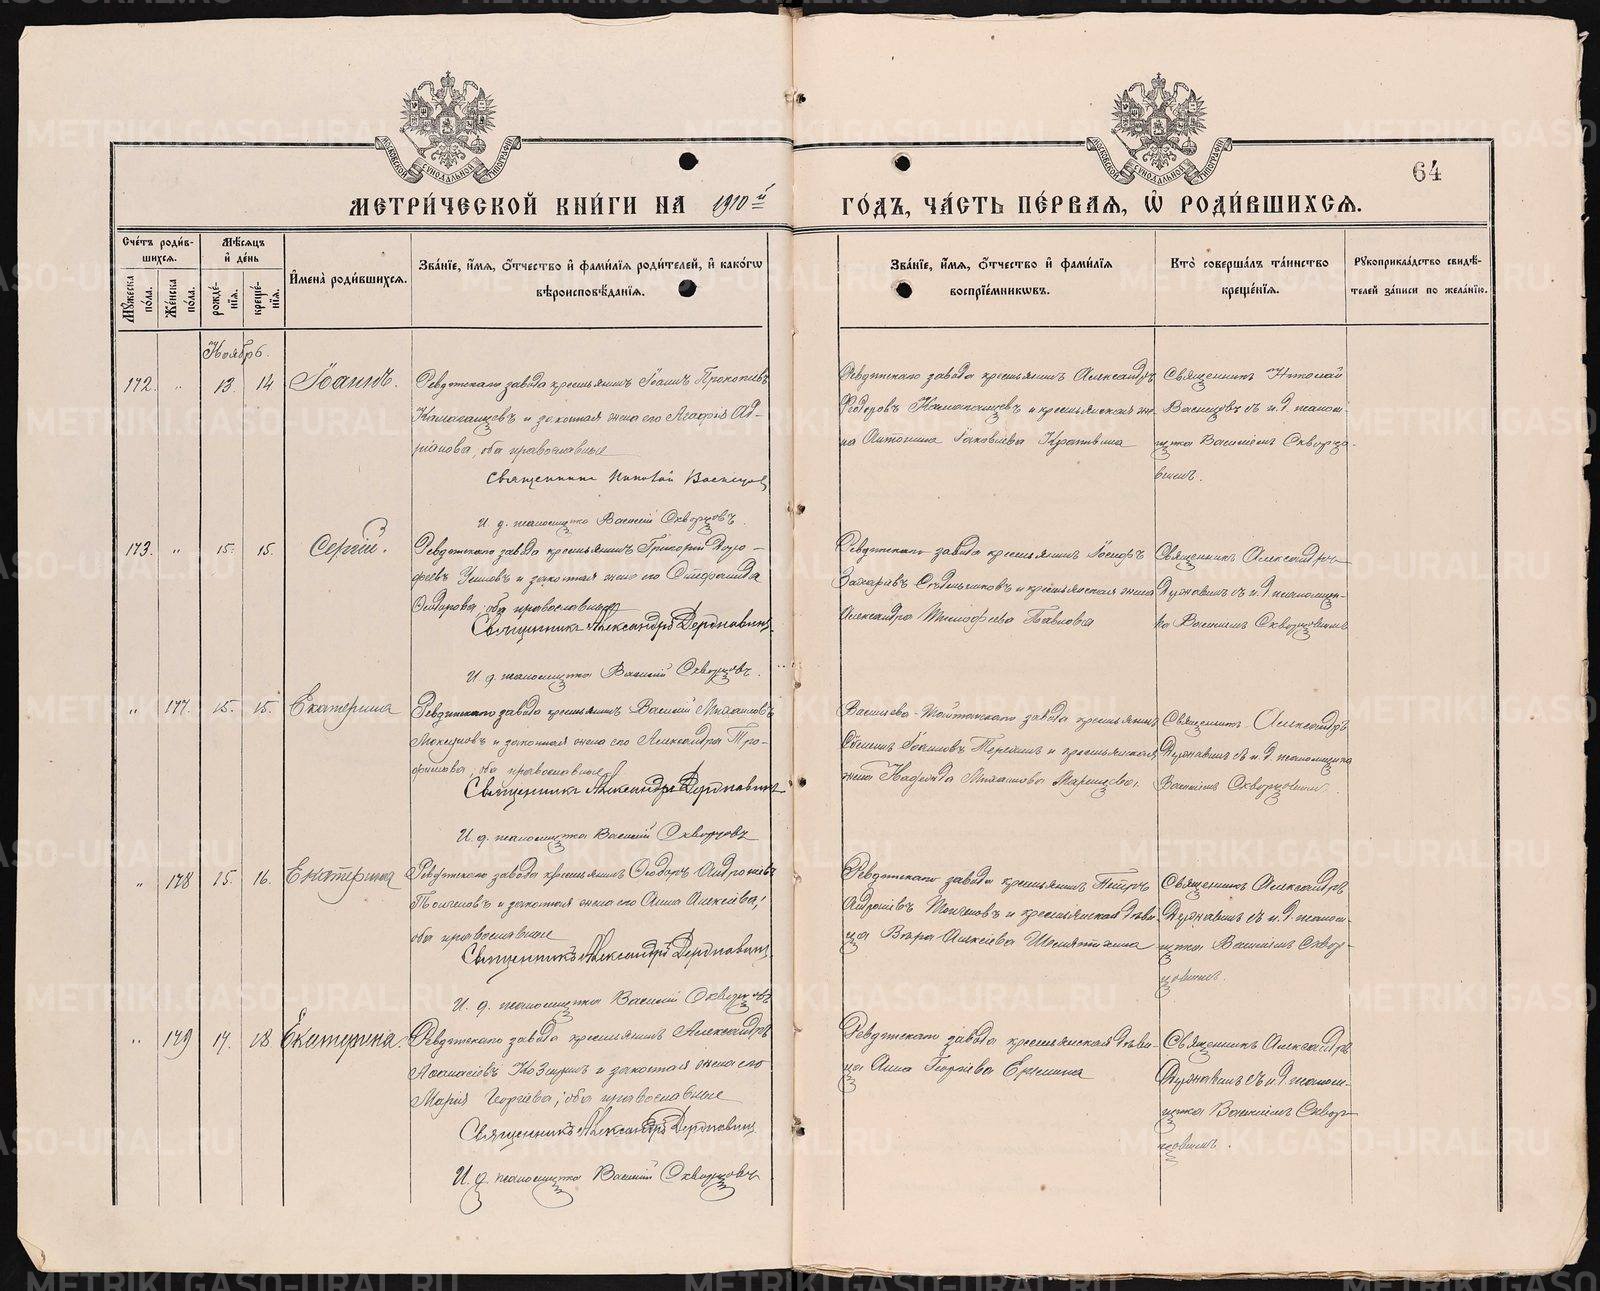 МОСКОВСКОЙ СѴНОДАЛЬНОЙ ТИПОГРАФІИ
МОСКОВСКОЙ СѴНОДАЛЬНОЙ ТИПОГРАФІИ
64
МЕТРИ́ЧЕСКОЙ КНИ́ГИ НА 1910 й
ГО́ДЪ, ЧА́СТЬ ПЕ́РВАЯ, Ѡ҆ РОДИ́ВШИХСЯ.
Сче́тъ роди́в-
шихся.
Мѣ́сяцъ
и҆ де́нь
Му́жеска по́ла.
Же́нска по́ла.
рожде́-нїя.
креще́-нїя.
И҆мена̀ роди́вшихся.
Зва́нїе, и҆́мя, ѻ҆́тчество и҆ фами́лїя роди́телей, и҆ како́гѡ
вѣроисповѣ́данїя.
Зва́нїе, и҆́мя, ѻ҆́тчество и҆ фами́лїя
воспрїе́мникѡвъ.
Кто̀ соверша́лъ та́инство
креще́нїя.
Рꙋкоприкла́дство свидѣ́-
телей за́писи по жела́нїю.
Ноябрь.
172. " 13 14 Іоаннъ.
Ревдинскаго завода крестьянинъ Іоаннъ Прокопіевъ
и законная жена его Агафія Ад-
ріанова, оба православные
Священникъ Николай Васнецов
И. д. псаломщика Василій Скворцовъ.
Ревдинскаго завода крестьянинъ Александръ
Ѳеодоровъ и крестьянская же-
на Антонина Іаковлева Крапивина
Священникъ Николай
Васнецовъ съ и. д. псалом-
щика Василіемъ Скворцо-
вымъ.
173. " 15. 15. Сергій.
Ревдинскаго завода крестьянинъ Григорій Доро-
феевъ и законная жена его Стефанида
Ѳеодорова, оба православные
Священникъ Александръ Державинъ.
И. д. псаломщика Василій Скворцовъ.
Ревдинскаго завода крестьянинъ Іосифъ
Захаріевъ и крестьянская жена
Александра Тимофеева Павлова
Священникъ Александръ
Державинъ съ и. д. псаломщи-
ка Василіемъ Скворцовымъ
" 177. 15. 15. Екатерина
Ревдинскаго завода крестьянинъ Василій Михаиловъ
и законная жена его Александра Тро-
фимова, оба православные
Священникъ Александръ Державинъ
И. д. псаломщика Василій Скворцовъ
Васильево-Шайтанскаго завода крестьянинъ
Іоанновъ и крестьянская
жена Михаилова
Священникъ Александръ
Державинъ съ и. д. псаломщика
Василіемъ Скворцовымъ.
" 178 15. 16. Екатерина
Ревдинскаго завода крестьянинъ Ѳеодоръ Андроніевъ
и законная жена его Анна Алексіева,
оба православные
Священникъ Александръ Державинъ.
И. д. псаломщика Василій Скворцовъ
Ревдинскаго завода крестьянинъ Петръ
Андроніевъ и крестьянская дѣви-
ца Вѣра Алексіева
Священникъ Александръ
Державинъ съ и. д. псалом-
щика Василіемъ Сквор-
цовымъ.
" 179 17. 18 Екатерина.
Ревдинскаго завода крестьянинъ Александръ
Аѳанасіевъ Козыринъ и законная жена его
Марія Георгіева, оба православные
Священникъ Александръ Державинъ
И. д. псаломщика Василій Скворцовъ
Ревдинскаго завода крестьянская дѣви-
ца Анна Георгіева
Священникъ Александръ
Державинъ съ и. д. псалом-
щика Василіемъ Сквор-
цовымъ.
METRIKI.GASO-URAL.RU